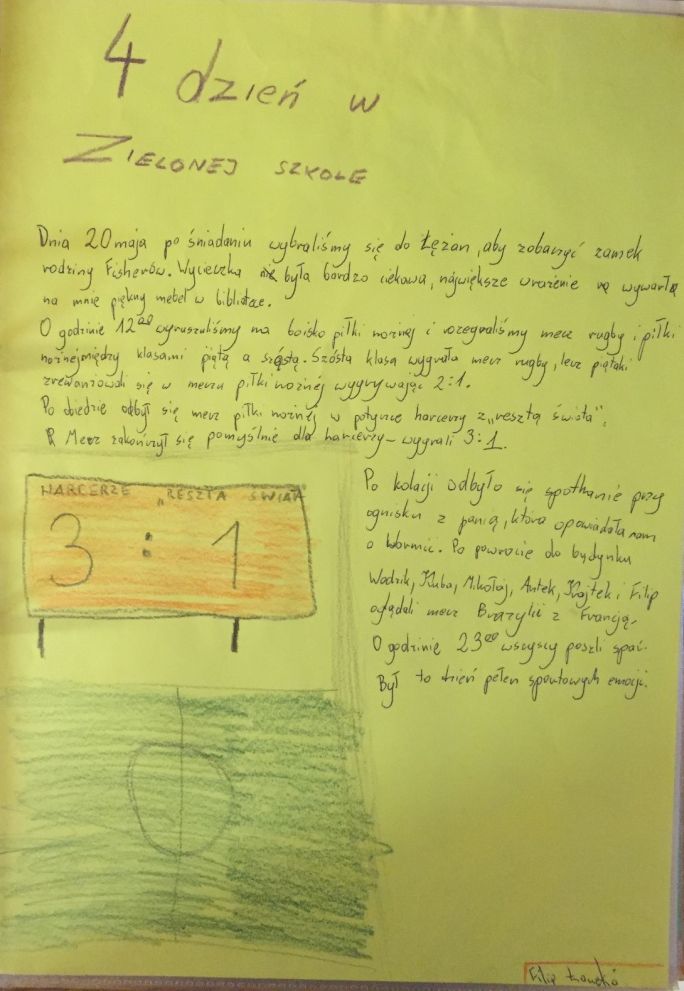 4 dzień w
ZIELONEJ SZKOLE
Dnia 20 maja po śniadaniu wybraliśmy się do Łężan, aby zobaczyć zamek
rodziny Fisherów. Wycieczka była bardzo ciekawa, największe wrażenie wywarł
na mnie piękny mebel w bibliotece.
O godzinie 12⁰⁰ wyruszyliśmy na boisko piłki nożnej i rozegraliśmy mecz rugby i piłki
nożnej między klasami piątą a szóstą. Szósta klasa wygrała mecz rugby, lecz piątaki
zrewanżowali się w meczu piłki nożnej wygrywając 2:1.
Po obiedzie odbył się mecz piłki nożnej w potyczce harcerzy z „resztą świata".
Mecz zakończył się pomyślnie dla harcerzy – wygrali 3:1.
HARCERZE „RESZTA ŚWIATA
3 : 1
Po kolacji odbyło się spotkanie przy
ognisku z panią, która opowiadała nam
o Warmii. Po powrocie do budynku
Kuba, Mikołaj, Antek, Wojtek i Filip
oglądali mecz Brazylii z Francją.
O godzinie 23⁰⁰ wszyscy poszli spać.
Był to dzień pełen sportowych emocji.
Filip